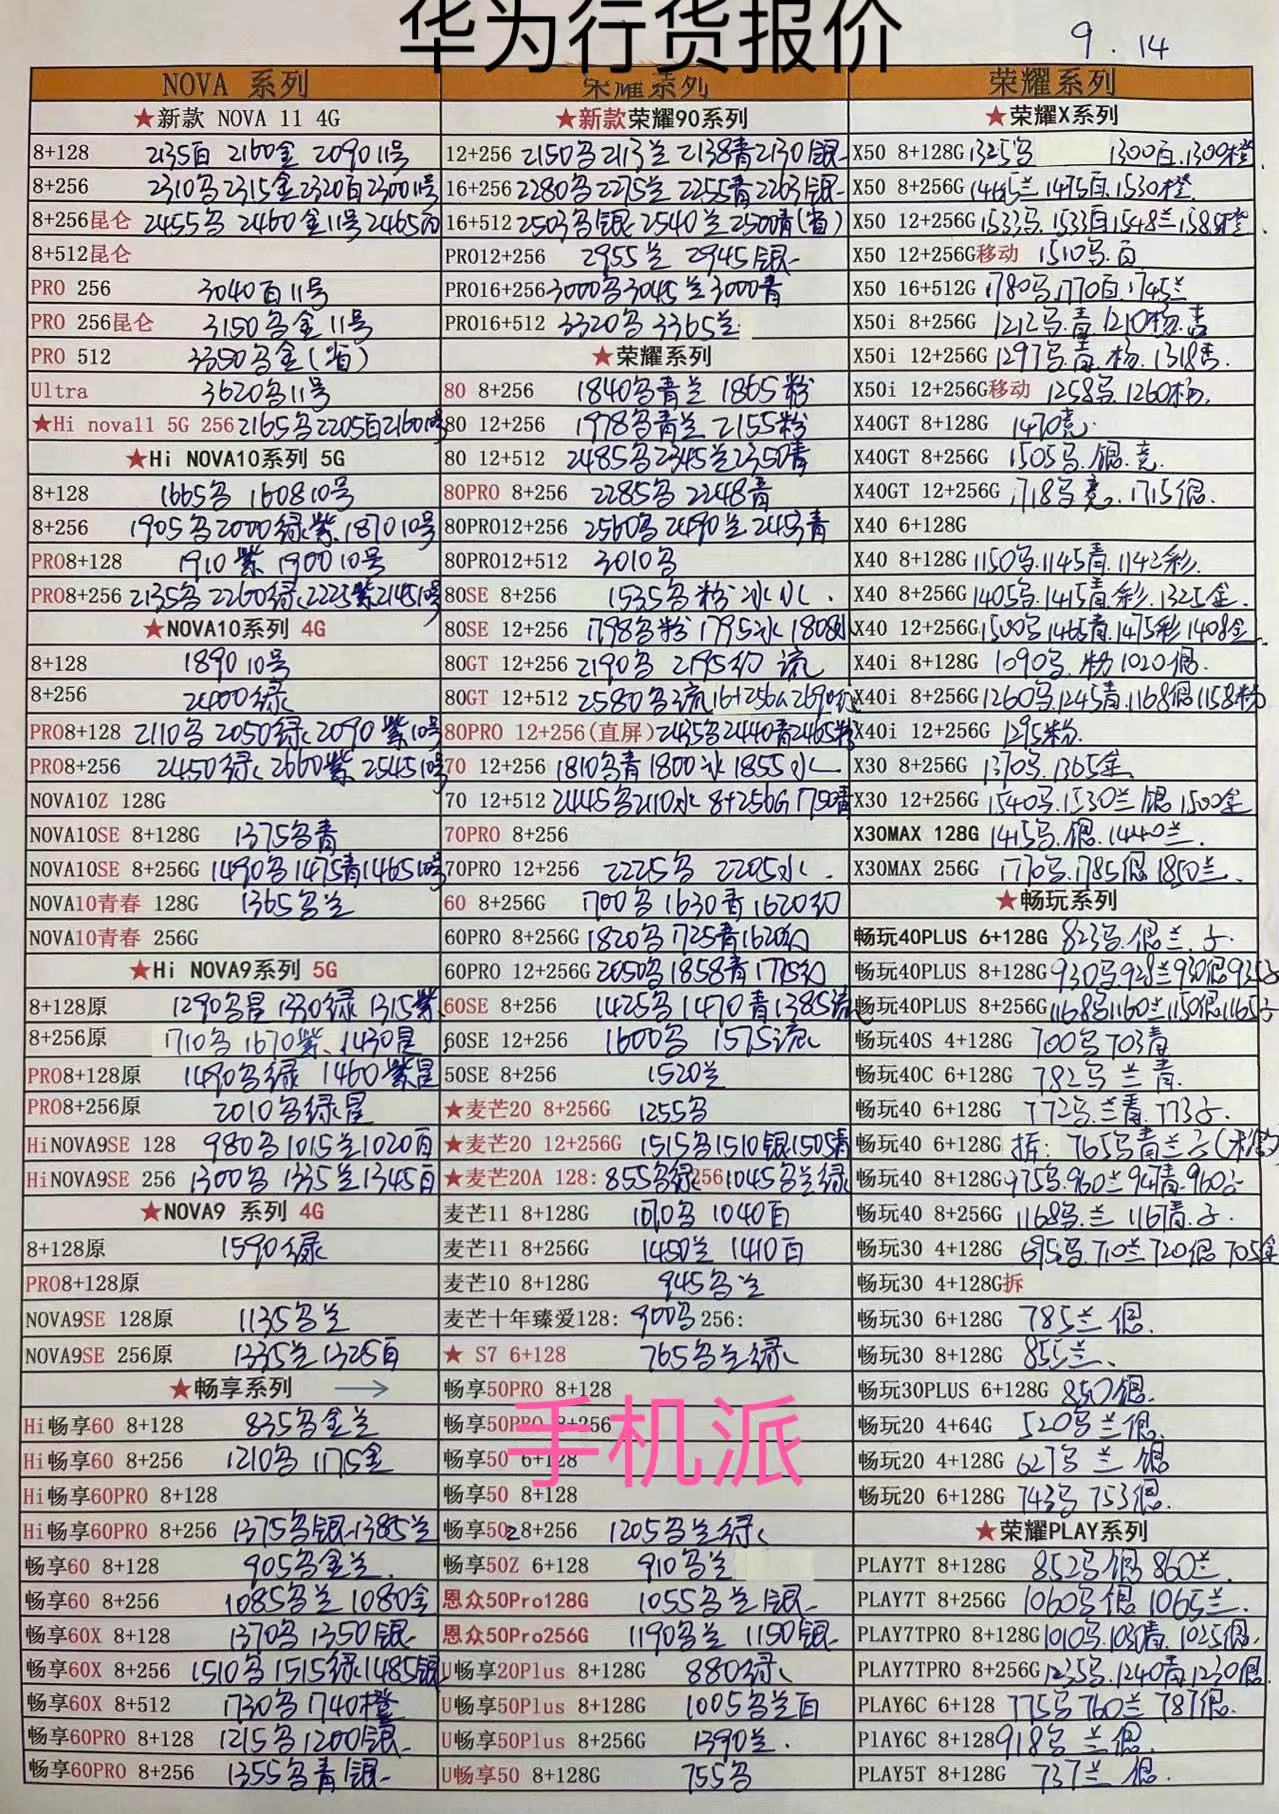 华为行货报价
9.14
NOVA 系列
★新款 NOVA 11 4G
8+128 2135百 2160金 2090 11号
8+256 2310多2315金2320百2300 11号
8+256昆仑 2455多 2460金11号2465百
8+512昆仑
PRO 256 3040百11号
PRO 256昆仑 3150多金11号
PRO 512 3350多金(省)
Ultra 3620多11号
★Hi nova11 5G 256 2165多2205百2160
★Hi NOVA10系列 5G
8+128 1665多 1608 10号
8+256 1905多2000绿紫 1870 10号
PRO8+128 1910紫 1900 10号
PRO8+256 2135多 2260绿2225紫2145 10号
★NOVA10系列 4G
8+128 1890 10号
8+256 2400绿
PRO8+128 2110多 2050绿 2090紫10号
PRO8+256 2450绿 2660紫 2545 10号
NOVA10Z 128G
NOVA10SE 8+128G 1375多青
NOVA10SE 8+256G 1490多1475青1465 10号
NOVA10青春 128G 1365多兰
NOVA10青春 256G
★Hi NOVA9系列 5G
8+128原 1290多星 1330绿 1315紫
8+256原 1710多 1670紫、1430星
PRO8+128原 1490多绿 1460紫星
PRO8+256原 2010多绿星
HiNOVA9SE 128 980多1015兰1020百
HiNOVA9SE 256 1300多 1335兰1345百
★NOVA9 系列 4G
8+128原 1590绿
PRO8+128原
NOVA9SE 128原 1135多兰
NOVA9SE 256原 1335兰1325百
★畅享系列 →
Hi畅享60 8+128 835多金兰
Hi畅享60 8+256 1210多 1175金
Hi畅享60PRO 8+128
Hi畅享60PRO 8+256 1375多银 1385兰
畅享60 8+128 905多金兰
畅享60 8+256 1085多兰 1080金
畅享60X 8+128 1370多 1350银
畅享60X 8+256 1510多 1515绿1485银
畅享60X 8+512 1730多 1740橙
畅享60PRO 8+128 1215多1200银
畅享60PRO 8+256 1355多青银
荣耀系列
★新款荣耀90系列
12+256 2150多2113兰2138青2130银
16+256 2280多2275兰2255青2263银
16+512 2503多银2540兰2500青(省)
PRO12+256 2955兰 2945银
PRO16+256 3000多3045兰3000青
PRO16+512 3320多 3365兰
★荣耀系列
80 8+256 1840多青兰 1865粉
80 12+256 1978多青兰 2155粉
80 12+512 2485多2345兰2350青
80PRO 8+256 2285多 2248青
80PRO12+256 2560多2490兰 2445青
80PRO12+512 3010多
80SE 8+256 1535多粉冰水
80SE 12+256 1798多粉 1795冰 1808水
80GT 12+256 2190多 2195幻 流
80GT 12+512 2580多流 16+256G 2690
80PRO 12+256(直屏) 2435多2440青2465粉
70 12+256 1810多青1800冰1855水
70 12+512 2445多2110水 8+256G 1750青
70PRO 8+256
70PRO 12+256 2225多 2205水
60 8+256G 1700多1630青1620幻
60PRO 8+256G 1820多1725青1620幻
60PRO 12+256G 2050多1858青1775幻
60SE 8+256 1425多1470青1385流
60SE 12+256 1600多 1575流
50SE 8+256 1520兰
★麦芒20 8+256G 1255多
★麦芒20 12+256G 1515多1510银1505青
★麦芒20A 128: 855多绿256 1045多兰绿
麦芒11 8+128G 1010多 1040百
麦芒11 8+256G 1450兰 1410百
麦芒10 8+128G 945多兰
麦芒十年臻爱128: 900多 256:
★ S7 6+128 765多兰绿
畅享50PRO 8+128
畅享50PRO 8+256
畅享50 6+128
畅享50 8+128
畅享50z8+256 1205多兰绿
畅享50Z 6+128 910多兰
恩众50Pro128G 1055多兰银
恩众50Pro256G 1190多兰 1150银
U畅享20Plus 8+128G 880绿
U畅享50Plus 8+128G 1005多兰百
U畅享50Plus 8+256G 1390兰.
U畅享50 8+128G 755多
荣耀系列
★荣耀X系列
X50 8+128G 1325多 1300百.1300橙
X50 8+256G 1445兰1475百.1530橙
X50 12+256G 1533多.1533百1548兰1585橙
X50 12+256G移动 1510多.百
X50 16+512G 1780多1770百.1745兰
X50i 8+256G 1212多.青1210粉.
X50i 12+256G 1297多青.粉.1318
X50i 12+256G移动 1258多 1260粉
X40GT 8+128G 1470竞
X40GT 8+256G 1505多.银.竞
X40GT 12+256G 1718多竞 1715银.
X40 6+128G
X40 8+128G 1150多1145青1142彩.
X40 8+256G 1405多.1415青彩.1325金
X40 12+256G 1500多1465青.1475彩1408金
X40i 8+128G 1090多.粉1020银.
X40i 8+256G 1260多.1245青.1168银1158粉
X40i 12+256G 1295粉.
X30 8+256G 1370多.1365金
X30 12+256G 1540多.1530兰银1500金
X30MAX 128G 1415多.银.1440兰.
X30MAX 256G 1770多.1785银1850兰
★畅玩系列
畅玩40PLUS 6+128G 823多.银兰.子
畅玩40PLUS 8+128G 930多928兰930银935子
畅玩40PLUS 8+256G 1168多1160兰1150银1165子
畅玩40S 4+128G 700多703青
畅玩40C 6+128G 782多兰青
畅玩40 6+128G 772多.兰青.773子.
畅玩40 6+128G 拆: 765多青兰子
畅玩40 8+128G 975多.960兰947青.960子
畅玩40 8+256G 1168多.兰 1167青.子.
畅玩30 4+128G 695多.710兰720银705金
畅玩30 4+128G拆
畅玩30 6+128G 785兰 银.
畅玩30 8+128G 855兰
畅玩30PLUS 6+128G 850银.
畅玩20 4+64G 520多兰银.
畅玩20 4+128G 627多 兰 银
畅玩20 6+128G 743多 753银.
★荣耀PLAY系列
PLAY7T 8+128G 852多银860兰
PLAY7T 8+256G 1060多银1065兰.
PLAY7TPRO 8+128G 1010多.1030青.1025银
PLAY7TPRO 8+256G 1235多.1240青1230银
PLAY6C 6+128 775多760兰 787银.
PlAY6C 8+128 918多 兰银.
PLAY5T 8+128G 737兰 银.
手机派